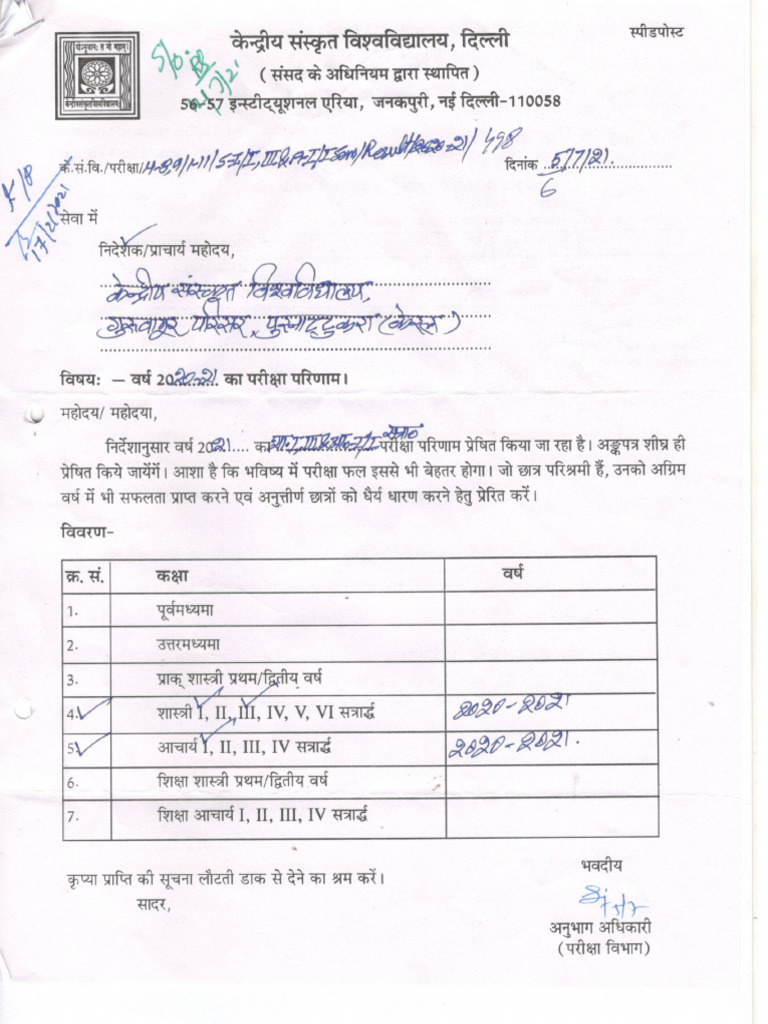 केन्द्रीय संस्कृत विश्वविद्यालय, दिल्ली
स्पीडपोस्ट
( संसद के अधिनियम द्वारा स्थापित )
56-57 इन्स्टीट्यूशनल एरिया, जनकपुरी, नई दिल्ली-110058
योऽनूचानः स नो महान्
के.सं.वि./परीक्षा/
दिनांक 5/7/21
सेवा में
निदेशक/प्राचार्य महोदय,
केन्द्रीय संस्कृत विश्वविद्यालय,
गुरुवायूर परिसर, पुरनाट्टुकरा (केरल)
विषय: – वर्ष 2020-21 का परीक्षा परिणाम।
महोदय/ महोदया,
निर्देशानुसार वर्ष 2021 का परीक्षा परिणाम प्रेषित किया जा रहा है। अङ्कपत्र शीघ्र ही
प्रेषित किये जायेंगें। आशा है कि भविष्य में परीक्षा फल इससे भी बेहतर होगा। जो छात्र परिश्रमी हैं, उनको अग्रिम
वर्ष में भी सफलता प्राप्त करने एवं अनुत्तीर्ण छात्रों को धैर्य धारण करने हेतु प्रेरित करें।
विवरण-
क्र. सं. कक्षा वर्ष
1. पूर्वमध्यमा
2. उत्तरमध्यमा
3. प्राक् शास्त्री प्रथम/द्वितीय वर्ष
4. शास्त्री I, II, III, IV, V, VI सत्रार्द्ध 2020-2021
5. आचार्य I, II, III, IV सत्रार्द्ध 2020-2021.
6. शिक्षा शास्त्री प्रथम/द्वितीय वर्ष
7. शिक्षा आचार्य I, II, III, IV सत्रार्द्ध
भवदीय
कृप्या प्राप्ति की सूचना लौटती डाक से देने का श्रम करें।
सादर,
अनुभाग अधिकारी
(परीक्षा विभाग)